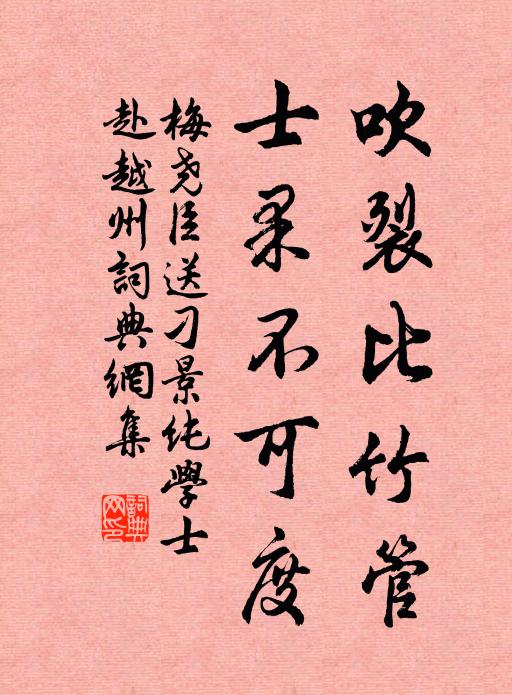 吹裂比竹管
士果不可度
梅尧臣送刁景纯學士
赴越州詞典網集
詞典网印